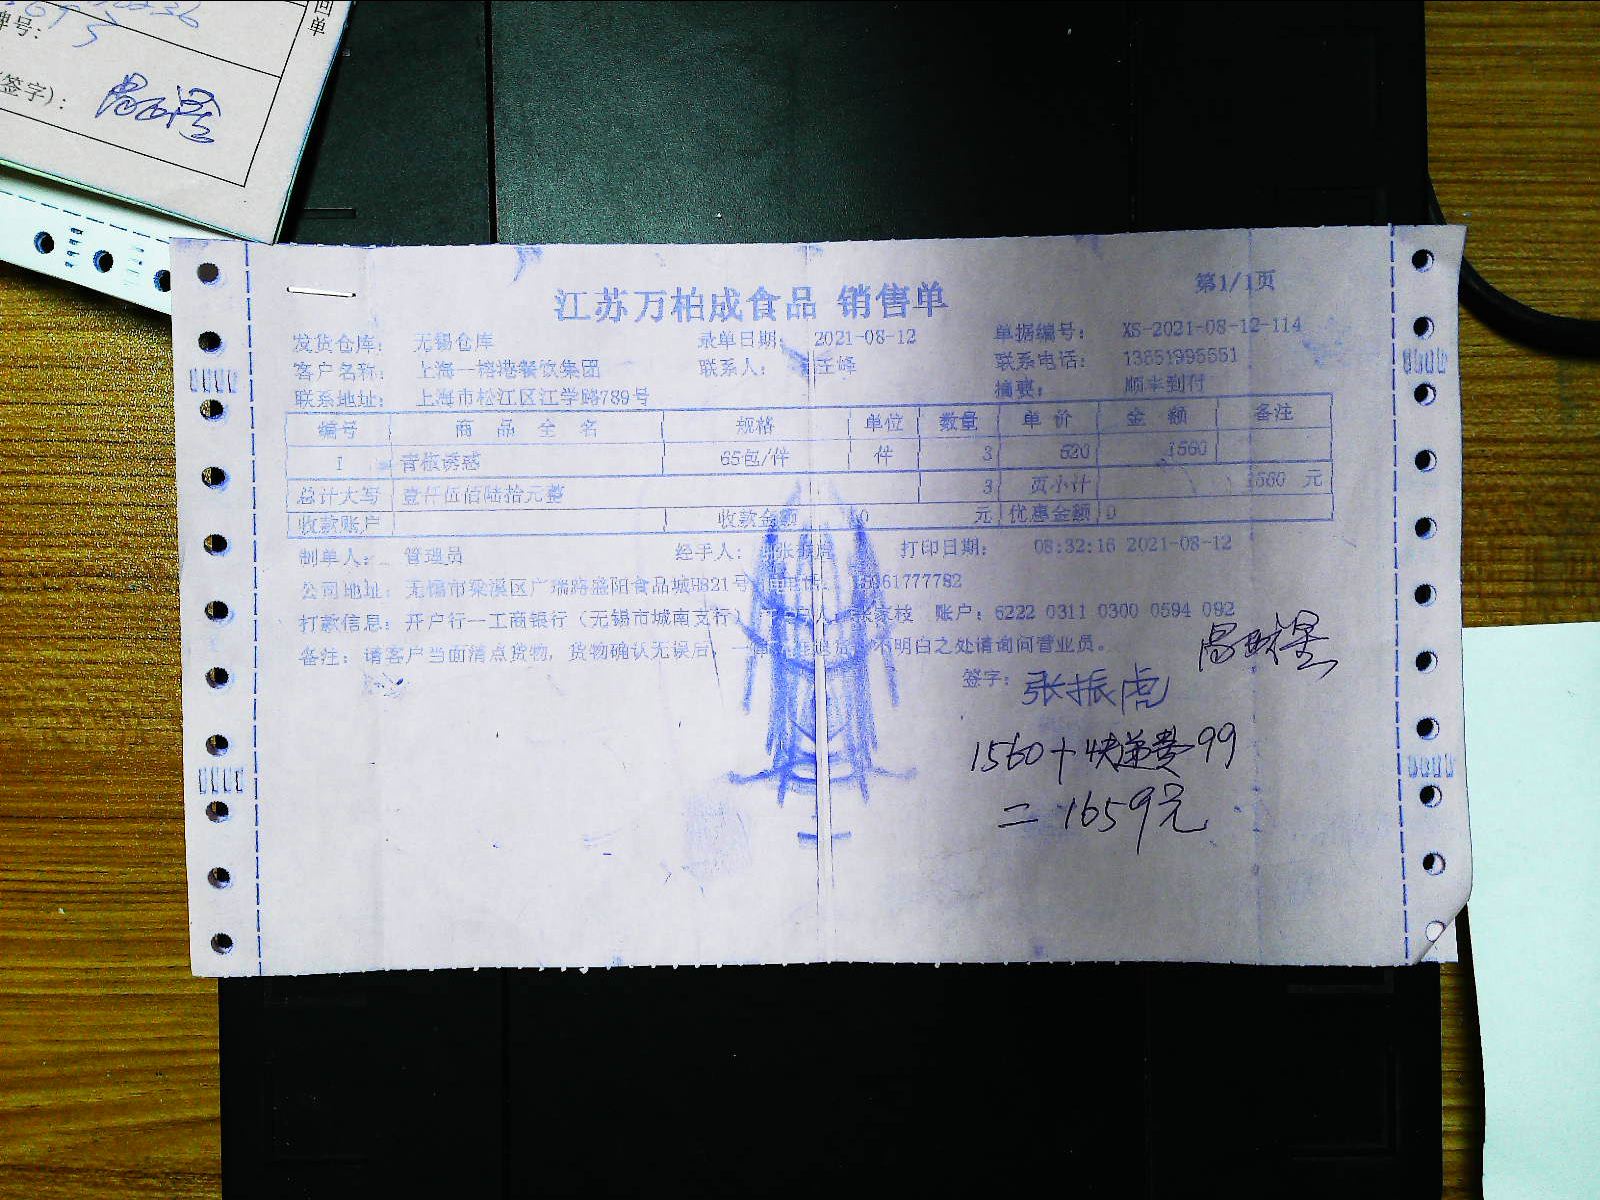 回单
牌号:
签字):
江苏万柏成食品 销售单
第1/1页
发货仓库: 无锡仓库 录单日期: 2021-08-12 单据编号: XS-2021-08-12-114
客户名称: 上海一榕港餐饮集团 联系人: 王峰 联系电话: 13651995551
联系地址: 上海市松江区江学路789号 摘要: 顺丰到付
编号 商品全名 规格 单位 数量 单价 金额 备注
1 青椒诱惑 65包/件 件 3 520 1560
总计大写 壹仟伍佰陆拾元整 3 页小计 1560 元
收款账户 收款金额 0 元 优惠金额 0
制单人: 管理员 经手人: 张振虎 打印日期: 08:32:16 2021-08-12
公司地址: 无锡市梁溪区广瑞路盛阳食品城H821号 电话:
打款信息: 开户行一工商银行(无锡市城南支行) 人: 张家枝 账户: 6222 0311 0300 0594 092
备注: 请客户当面清点货物, 货物确认无误后, 不明白之处请询问营业员。
签字: 张振虎
1560+快递费99
=1659元